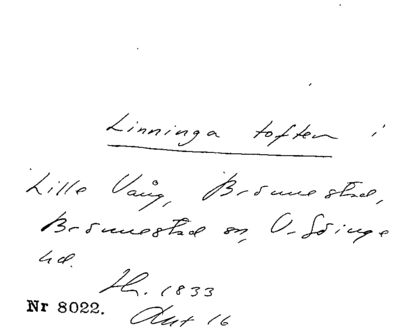 Linninga toften i
Lille Vång, Brönnestad,
Brönnestad sn, V. Göinge
hd.
Lh. 1833
Nr 8022. Akt 16